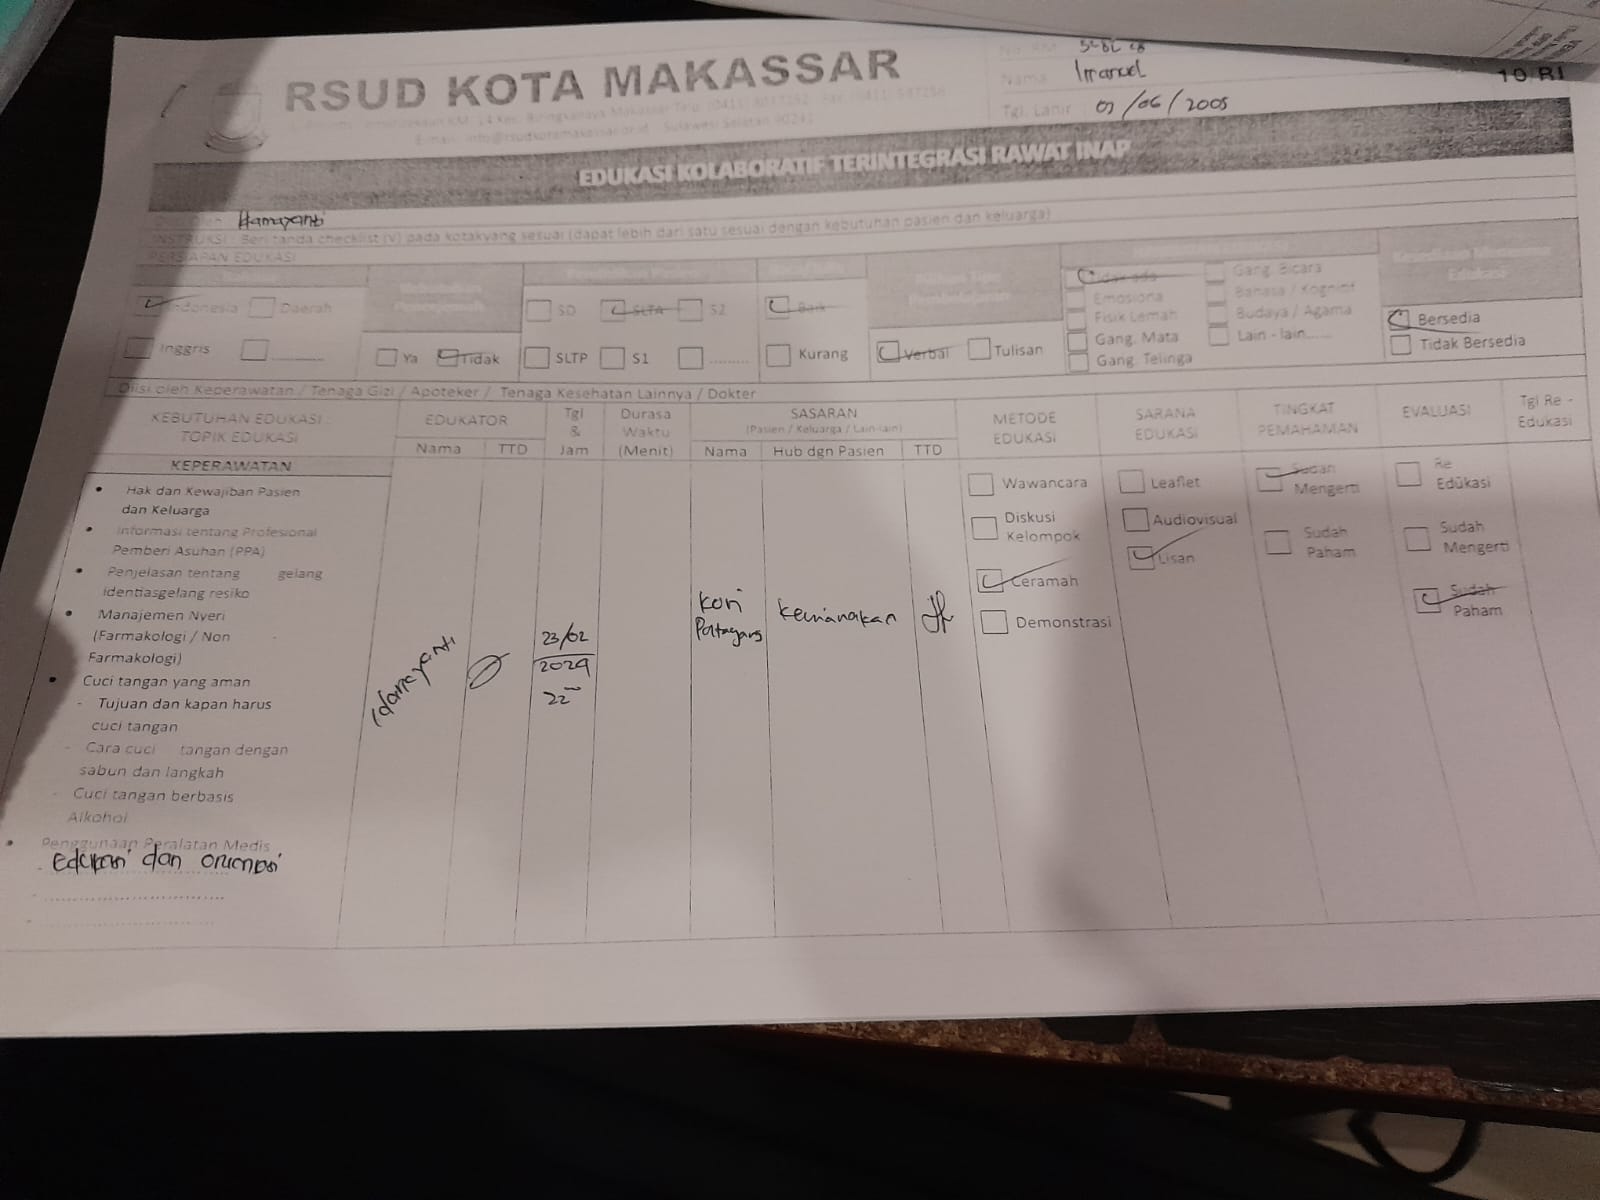 RSUD KOTA MAKASSAR
Nama Imanuel
Tgl. Lahir : 07/06/2005
10 RI
EDUKASI KOLABORATIF TERINTEGRASI RAWAT INAP
INSTRUKSI : Beri tanda checklist (V) pada kotakyang sesuai (dapat lebih dari satu sesuai dengan kebutuhan pasien dan keluarga)
PERSIAPAN EDUKASI
Edukasi
Indonesia Daerah
Inggris ............
Ya Tidak
SD SLTA S2
SLTP S1 .........
Baik
Kurang
Verbal Tulisan
Tidak ada
Emosiona
Fisik Lemah
Gang. Mata
Gang. Telinga
Gang. Bicara
Bahasa / Kognitif
Budaya / Agama
Lain - lain......
Bersedia
Tidak Bersedia
Diisi oleh Keperawatan / Tenaga Gizi / Apoteker / Tenaga Kesehatan Lainnya / Dokter
KEBUTUHAN EDUKASI :
TOPIK EDUKASI
EDUKATOR
Nama TTD
Tgl
&
Jam
Durasa
Waktu
(Menit)
SASARAN
(Pasien / Keluarga / Lain-lain)
Nama Hub dgn Pasien TTD
METODE
EDUKASI
SARANA
EDUKASI
TINGKAT
PEMAHAMAN
EVALUASI
Tgl Re -
Edukasi
KEPERAWATAN
• Hak dan Kewajiban Pasien
dan Keluarga
• Informasi tentang Profesional
Pemberi Asuhan (PPA)
• Penjelasan tentang gelang
identiasgelang resiko
• Manajemen Nyeri
(Farmakologi / Non
Farmakologi)
• Cuci tangan yang aman
- Tujuan dan kapan harus
cuci tangan
- Cara cuci tangan dengan
sabun dan langkah
- Cuci tangan berbasis
Alkohol
• Penggunaan Peralatan Medis
- Edukasi dan orientasi
23/02
2024
22
kemanakan
Wawancara
Diskusi
Kelompok
Ceramah
Demonstrasi
Leaflet
Audiovisual
Lisan
Sudah
Mengerti
Sudah
Paham
Re
Edukasi
Sudah
Mengerti
Sudah
Paham